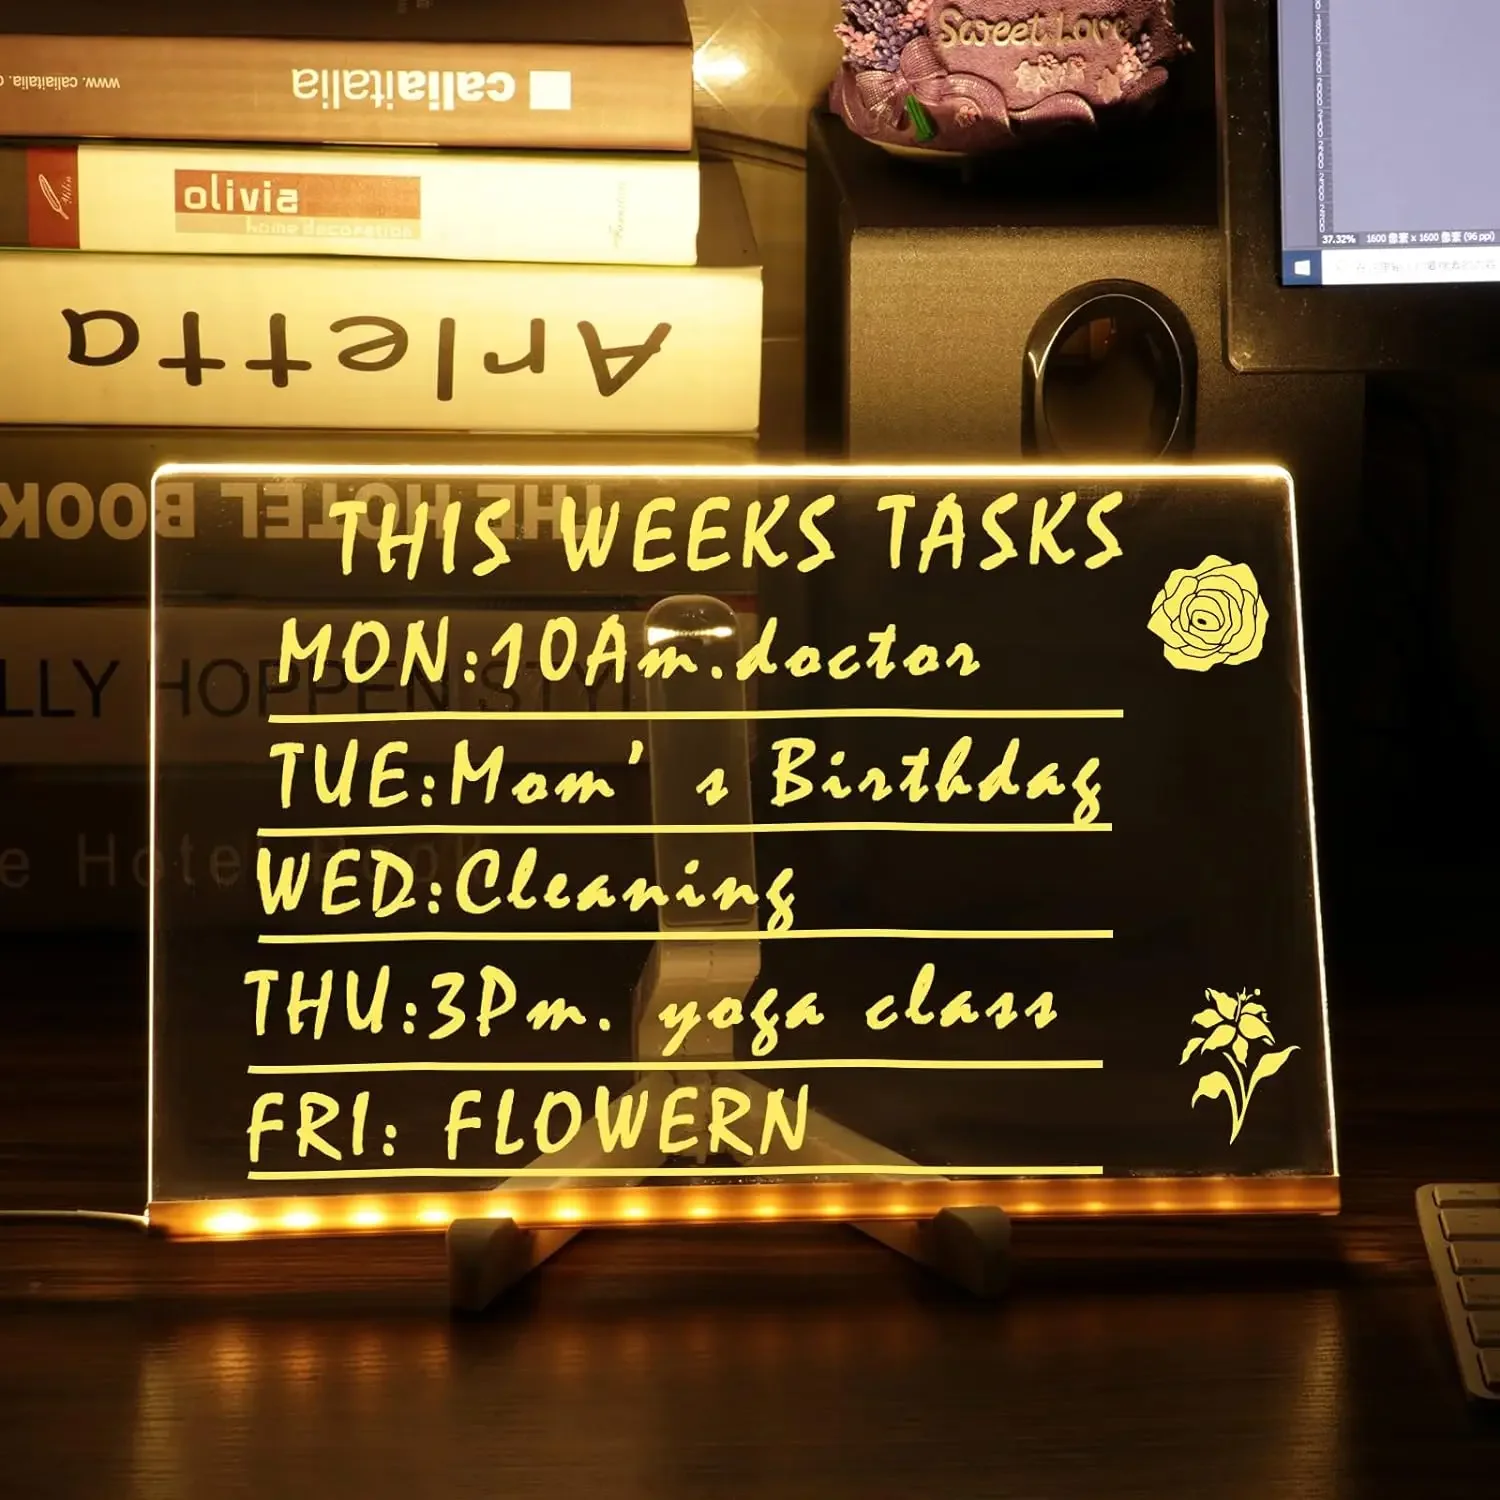 Sweet Love
www.caliaitalia.c
caliaitalia
olivia
home decoration
Arletta
THE HOTEL BOOK
LLY HOPPEN STYL
e Hotel Book
37.32% 1600 像素 x 1600 像素 (96 ppi)
THIS WEEKS TASKS
MON:10Am.doctor
TUE:Mom's Birthday
WED:Cleaning
THU:3Pm. yoga class
FRI: FLOWERN